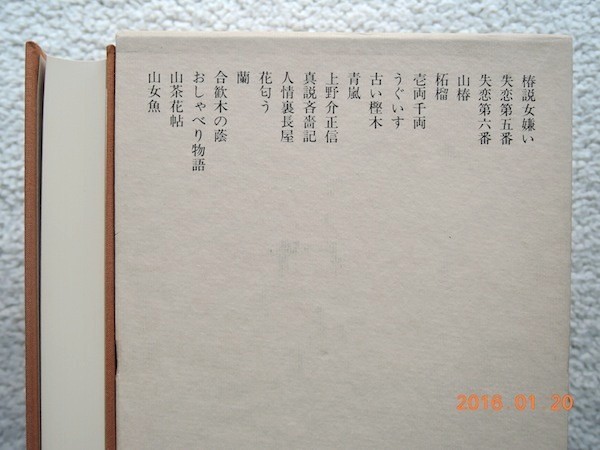 椿説女嫌い
失恋第五番
失恋第六番
山椿
柘榴
壱両千両
うぐいす
古い樫木
青嵐
上野介正信
真説吝嗇記
人情裏長屋
花匂う
蘭
合歓木の蔭
おしゃべり物語
山茶花帖
山女魚
2016 01 20